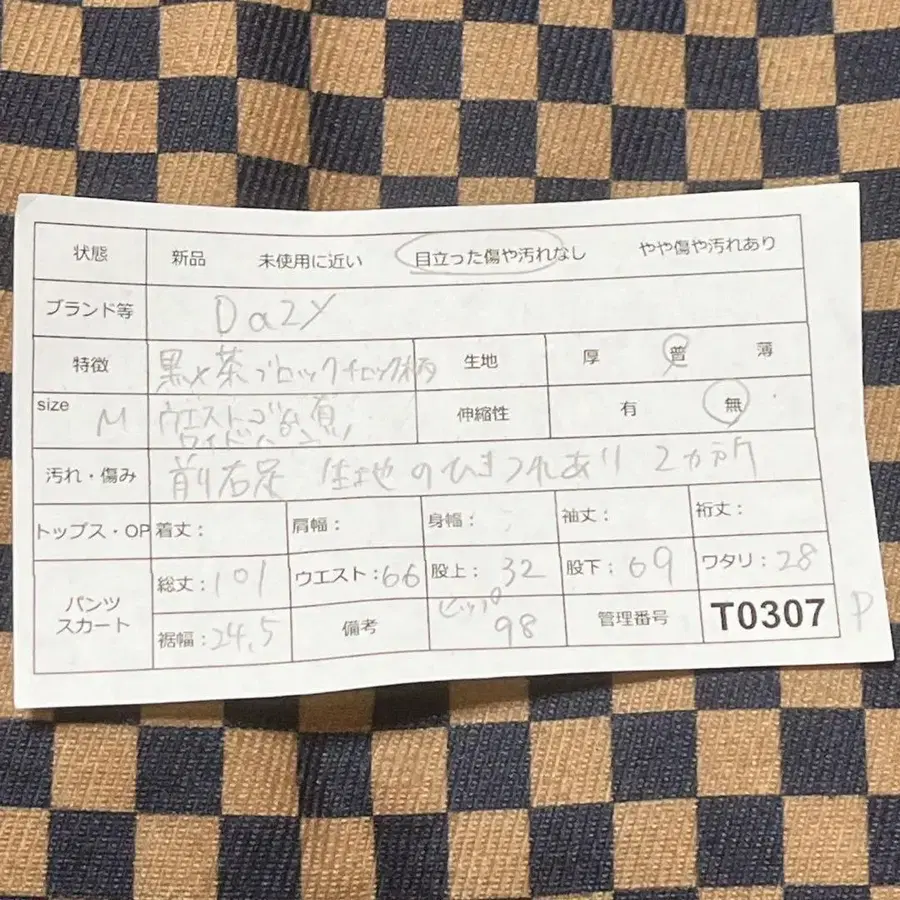 状態 新品 未使用に近い 目立った傷や汚れなし やや傷や汚れあり
ブランド等 Dazy
特徴 黒×茶ブロックチェック柄 生地 厚 普 薄
size M ウエストゴム有 伸縮性 有 無
ワイドパンツ
汚れ・傷み 前右足 生地のひきつれあり 2カ所
トップス・OP 着丈: 肩幅: 身幅: 袖丈: 裄丈:
パンツ スカート 総丈:101 ウエスト:66 股上:32 股下:69 ワタリ:28
裾幅:24.5 備考 ヒップ 98 管理番号 T0307 P